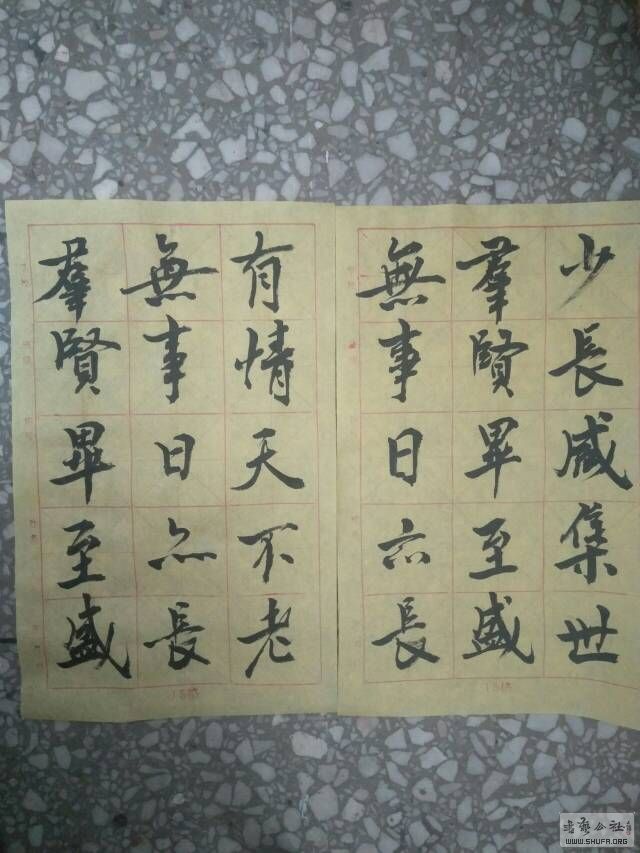 少長咸集世
羣賢畢至盛
無事日亦長
有情天不老
無事日亦長
羣賢畢至盛
15格
15格
書藝公社
WWW.SHUFA.ORG